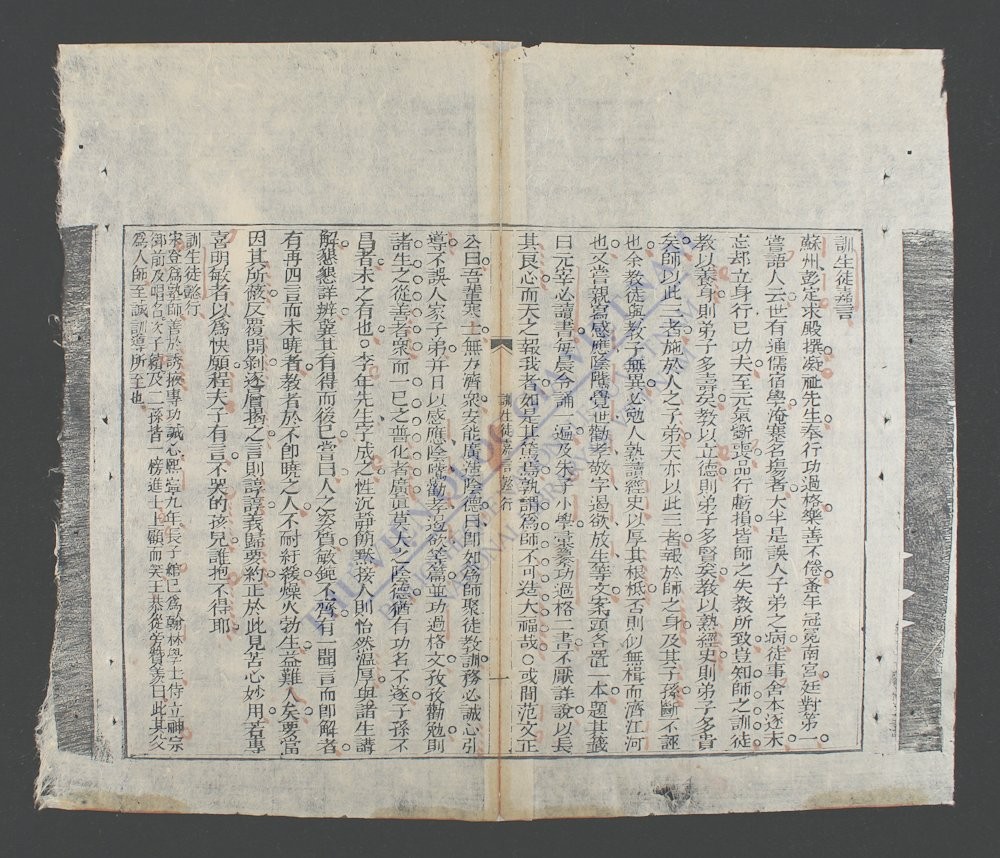 訓生徒嘉言
蘇州彭定求殿撰凝祉先生奉行功過格樂善不倦蚤年冠冕南宮廷對第一
嘗語人云世有通儒宿學淹蹇名塲者大半是誤人子弟之病徒事舍本逐末
忘却立身行已功夫至元氣斲喪品行虧損皆師之失教所致豈知師之訓徒
教以養身則弟子多壽矣教以立德則弟子多賢矣教以熟經史則弟子多貴
矣師以此三者施於人之子弟天亦以此三者報於師之身及其子孫斷不誣
也余教徒與教子無異必勉人熟讀經史以厚其根柢否則似無楫而濟江河
也又嘗敬寫感應陰隲覺世勸孝敬字遏欲放生等文案頭各置一本題其籤
曰元宰必讀書每晨令誦一遍及朱子小學當纂功過格二書不厭詳說以長
其良心而天之報我者如是其篤焉孰謂為師不可造大福哉○或問范文正
公曰吾輩寒士無力濟衆安能廣種陰德曰卽如為師聚徒教訓務必誠心引
導不誤人家子弟并日以感應陰隲勸孝遏欲等篇並功過格文孜孜勸勉則
諸生之從善者衆而一已之普化者廣矣莫大之陰德猶有功名不遂子孫不
昌者未之有也○李年先生子成之性沉靜簡默接人則怡然溫厚與諸生講
解懇懇詳辨冀其有得而後已嘗曰人之姿質敏鈍不齊有一聞言而即解者
有再四言而未曉者教者於不卽曉之人不耐紆緩燥火勃生益難人矣要當
因其所蔽反覆開剝逐層揭之言則諄諄義歸要約正於此見苦心妙用若專
喜明敏者以為快願程夫子有言不哭的孩兒誰抱不得耶
訓生徒懿行
宋登為塾師善於誘掖專功誠心熙寧九年長子綰已為翰林學士侍立神宗
御前及唱名次子續及二孫皆一榜進士上顧而笑王恭從旁贊羨曰此其父
為人師至誠訓導所至也
訓生徒嘉言懿行
一